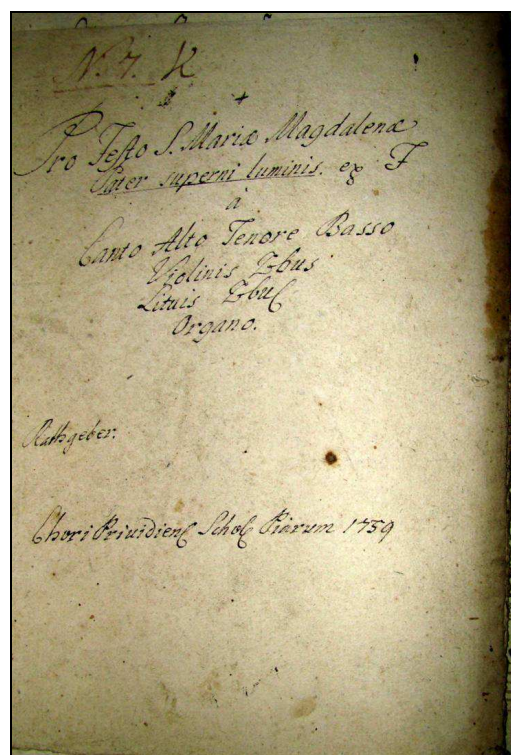 N. 7. K
Pro Festo S. Mariæ Magdalenæ
Pater superni luminis. ex F
à
Canto Alto Tenore Basso
Violinis 2bus
Lituis 2bus
Organo.
Rathgeber.
Chori Prividiens Schol Piarum 1759